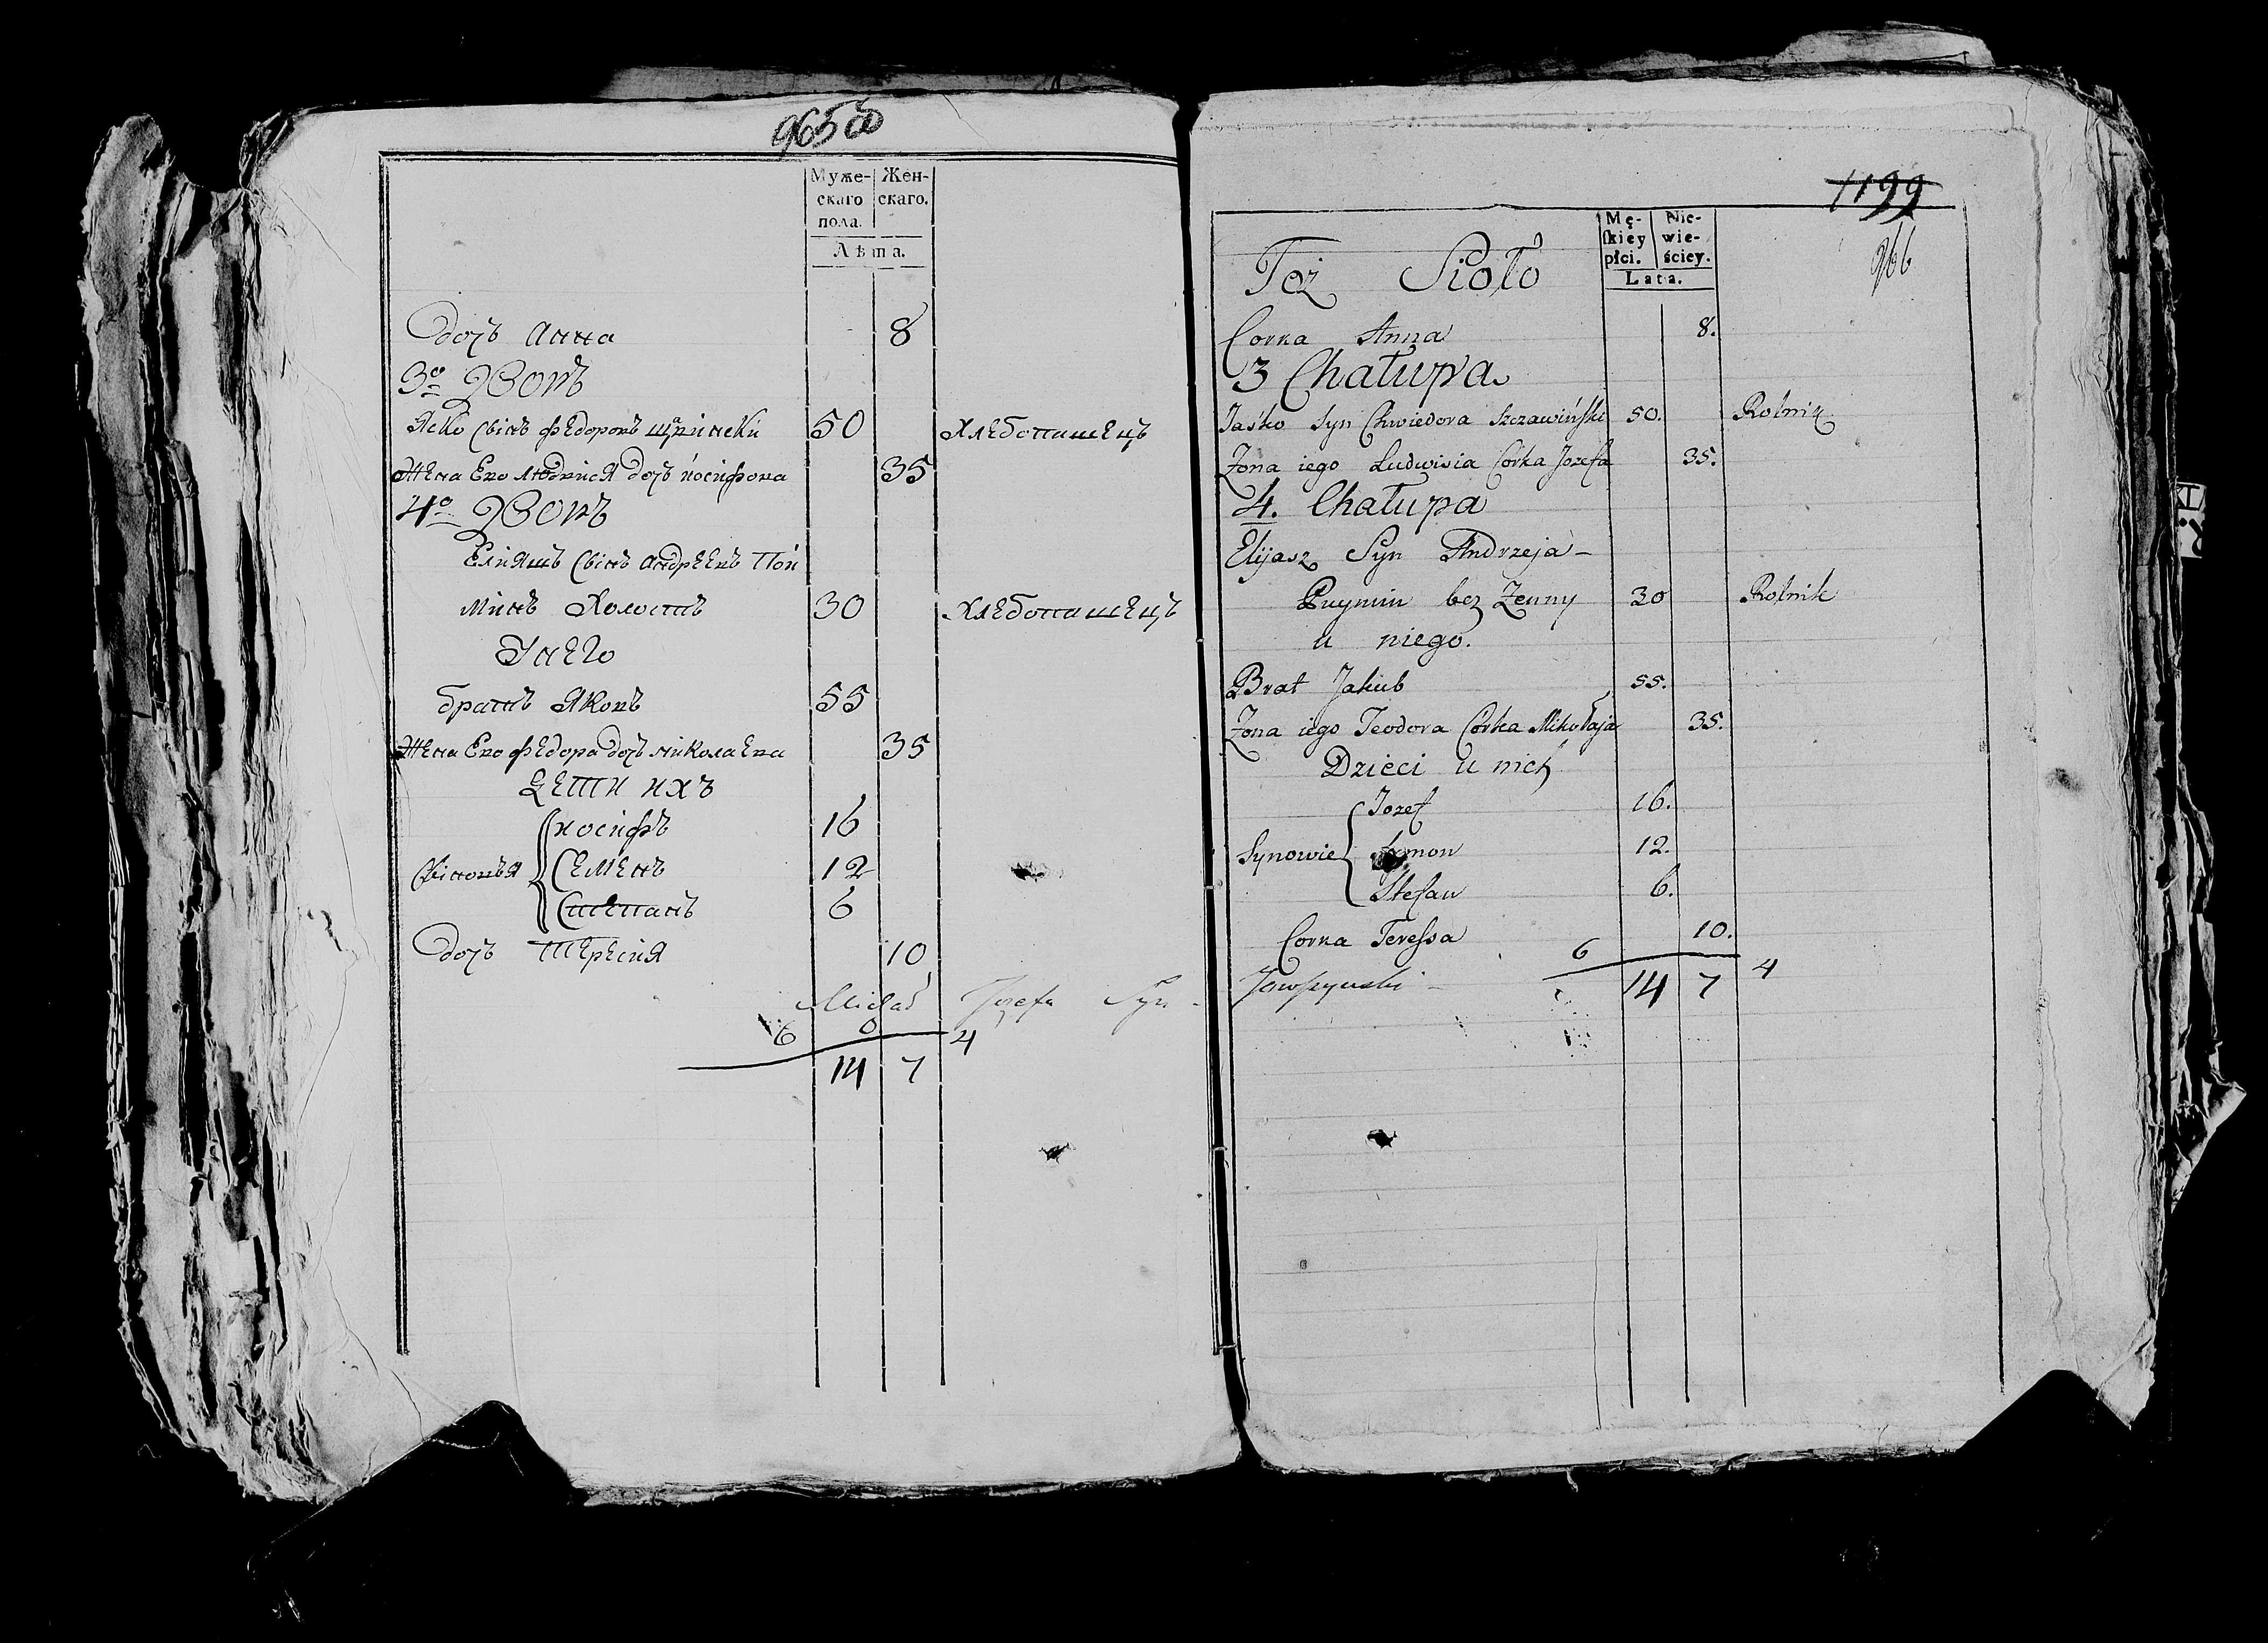 965 об
Муже-
скаго
пола.
Жен-
скаго.
Лѣта.
дочъ Анна 8
3о Дворъ
Яско Сынъ Федоровъ 50 Хлебопашецъ
Жена Его Людвися дочъ иосифова 35
4о Дворъ
Елияшъ Сынъ Андреевъ Пуй
минъ Холостъ 30 Хлебопашецъ
У Него
братъ Яковъ 55
Жена Его Федора дочъ николаева 35
Дети ихъ
иосифъ 16
Сыновья Семенъ 12
Степанъ 6
дочъ Тересия 10
Michał Jozefa Syn
6 4
14 7
1199
966
Mę-
skiey
płci.
Nie-
wie-
ściey.
Lata.
Też Sioło
Corka Anna 8.
3 Chałupa.
Jaśko Syn Chwiedora Szczawiński 50. Rolnik
Żona iego Ludwisia Córka Jozefa 35.
4. Chałupa
Elijasz Syn Andrzeja -
Puymin bez Żenny 30 Rolnik
u niego.
Brat Jakub 55.
Żona iego Teodora Córka Mikołaja 35.
Dzieci u nich
Jozef 16.
Synowie Symon 12.
Stefan 6.
Corka Teressa 10.
6 4
14 7